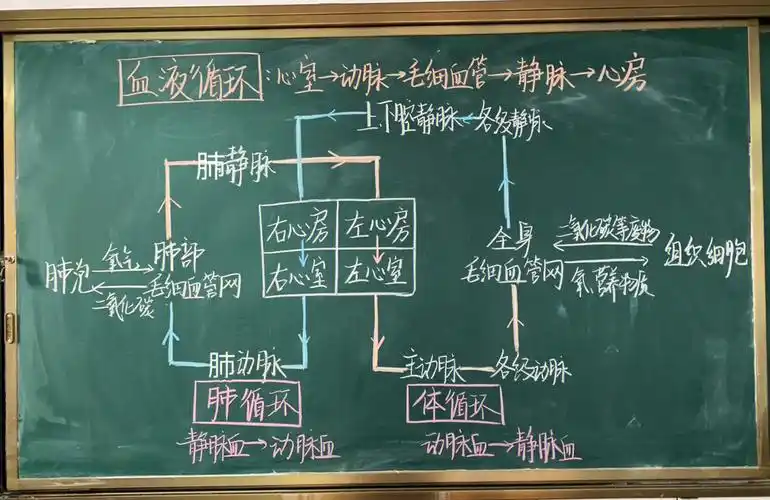 血液循环：心室→动脉→毛细血管→静脉→心房
上、下腔静脉←各级静脉
肺静脉
右心房 左心房
右心室 左心室
肺泡
氧气
二氧化碳
肺部
毛细血管网
全身
毛细血管网
二氧化碳等废物
氧、营养物质
组织细胞
肺动脉
主动脉
各级动脉
肺循环
体循环
静脉血→动脉血
动脉血→静脉血